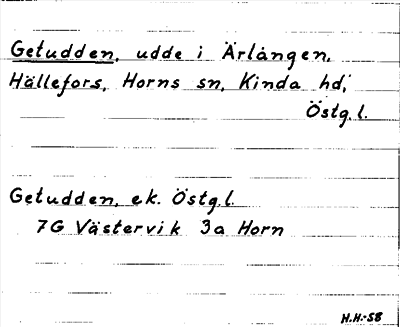 Getudden, udde i Ärlången,
Hällefors, Horns sn, Kinda hd,
Östg.l.
Getudden, ek. Östg.l.
7G Västervik 3a Horn
H.H.-58